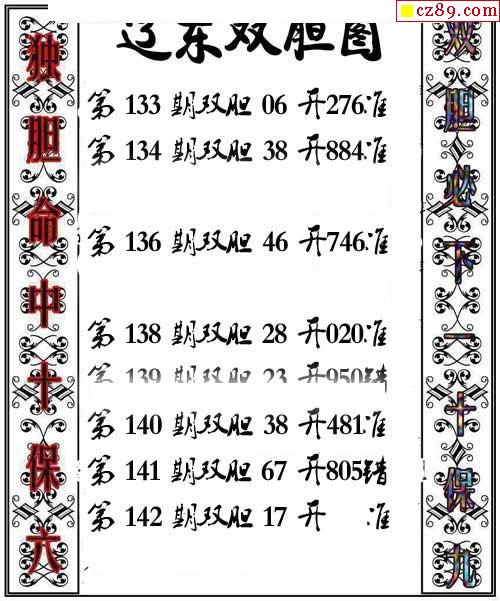 cz89.com
辽东双胆图
独胆命中十保六
第 133 期双胆 06 开276准
第 134 期双胆 38 开884准
第 136 期双胆 46 开746准
第 138 期双胆 28 开020准
第 139 期双胆 23 开950错
第 140 期双胆 38 开481准
第 141 期双胆 67 开805错
第 142 期双胆 17 开 准
双胆必下一十保九